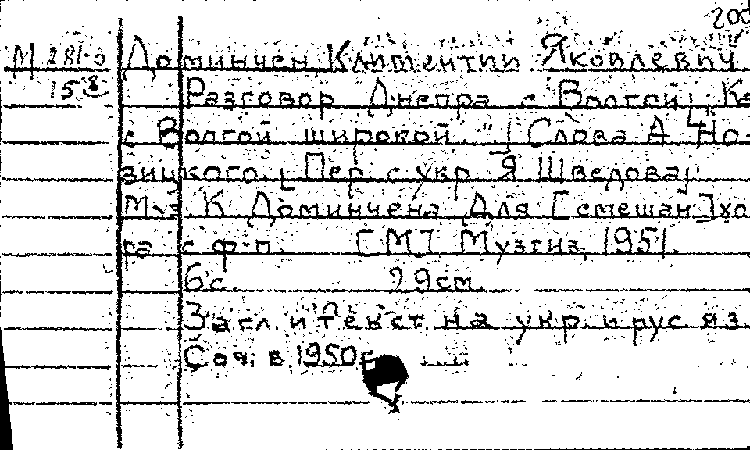 М 281-3 Доминчен Климентий Яковлевич
158 Разговор Днепра с Волгой
с Волгой широкой..." [Слова А. Но-
вицкого. Пер. с укр. Я. Шведова;
Муз. К. Доминчена Для [смешан.] хо-
ра с ф-п. [М.] Музгиз, 1951.
6 с. 29 см.
Загл. и текст на укр. и рус. яз.
Соч. в 1950 г.